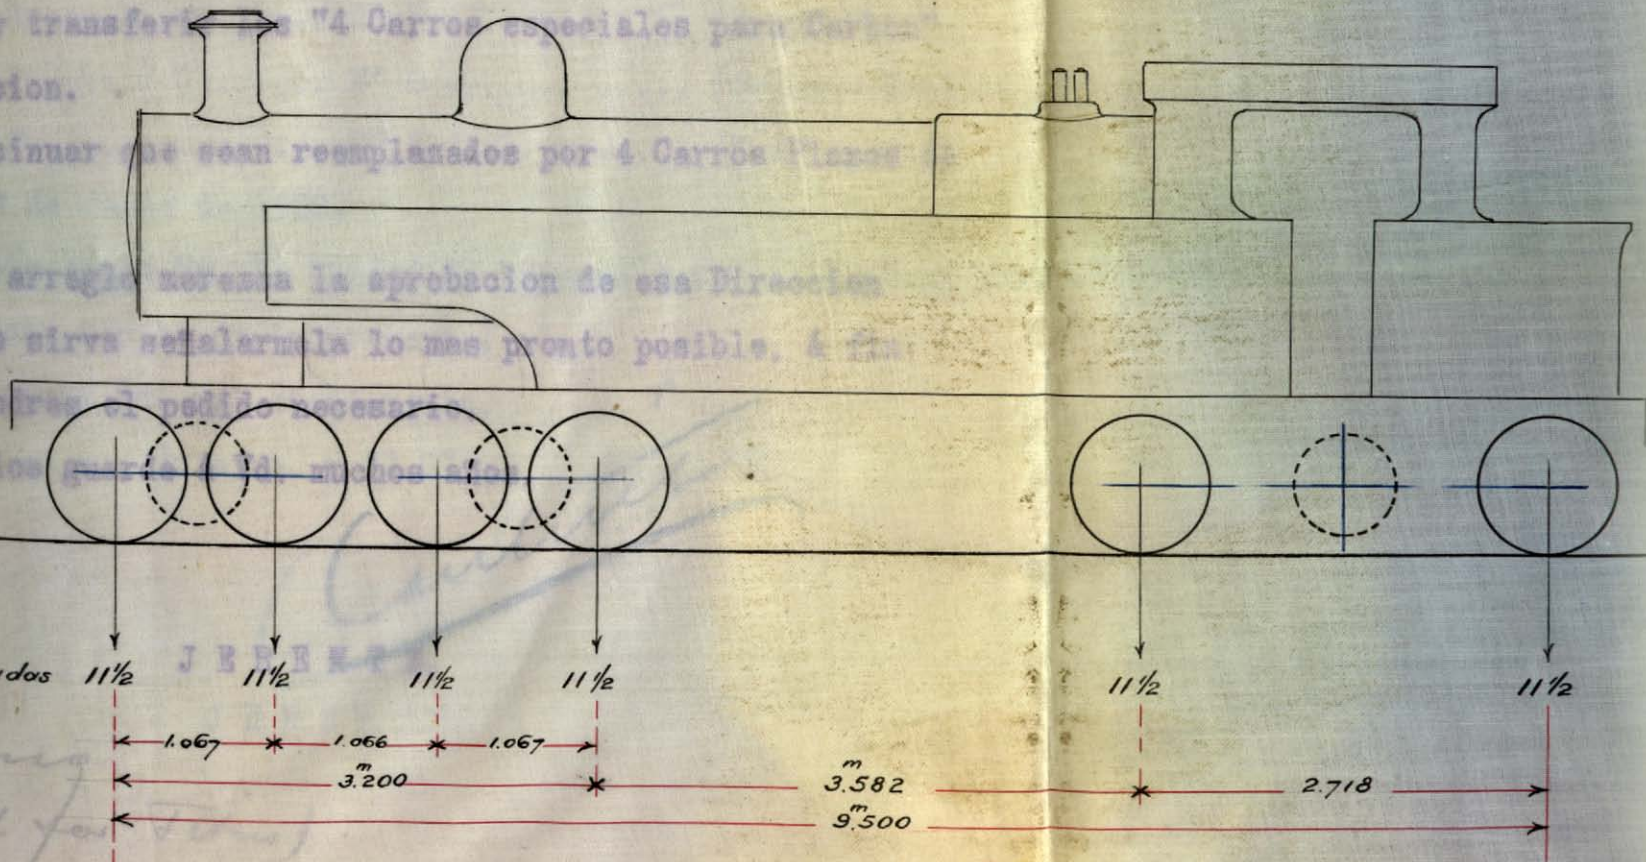 transferir los "4 Carros especiales para Carbon"
cion.
sinuar que sean reemplazados por 4 Carros Planos de
arreglo merezca la aprobacion de esa Direccion
sirva señalarmela lo mas pronto posible, á fin
el pedido necesario.
guarde á Vd. muchos años.
JEREN
adas 11½ 11½ 11½ 11½ 11½ 11½
1.067 1.066 1.067
3.200 m 3.582 m 2.718
9.500 m